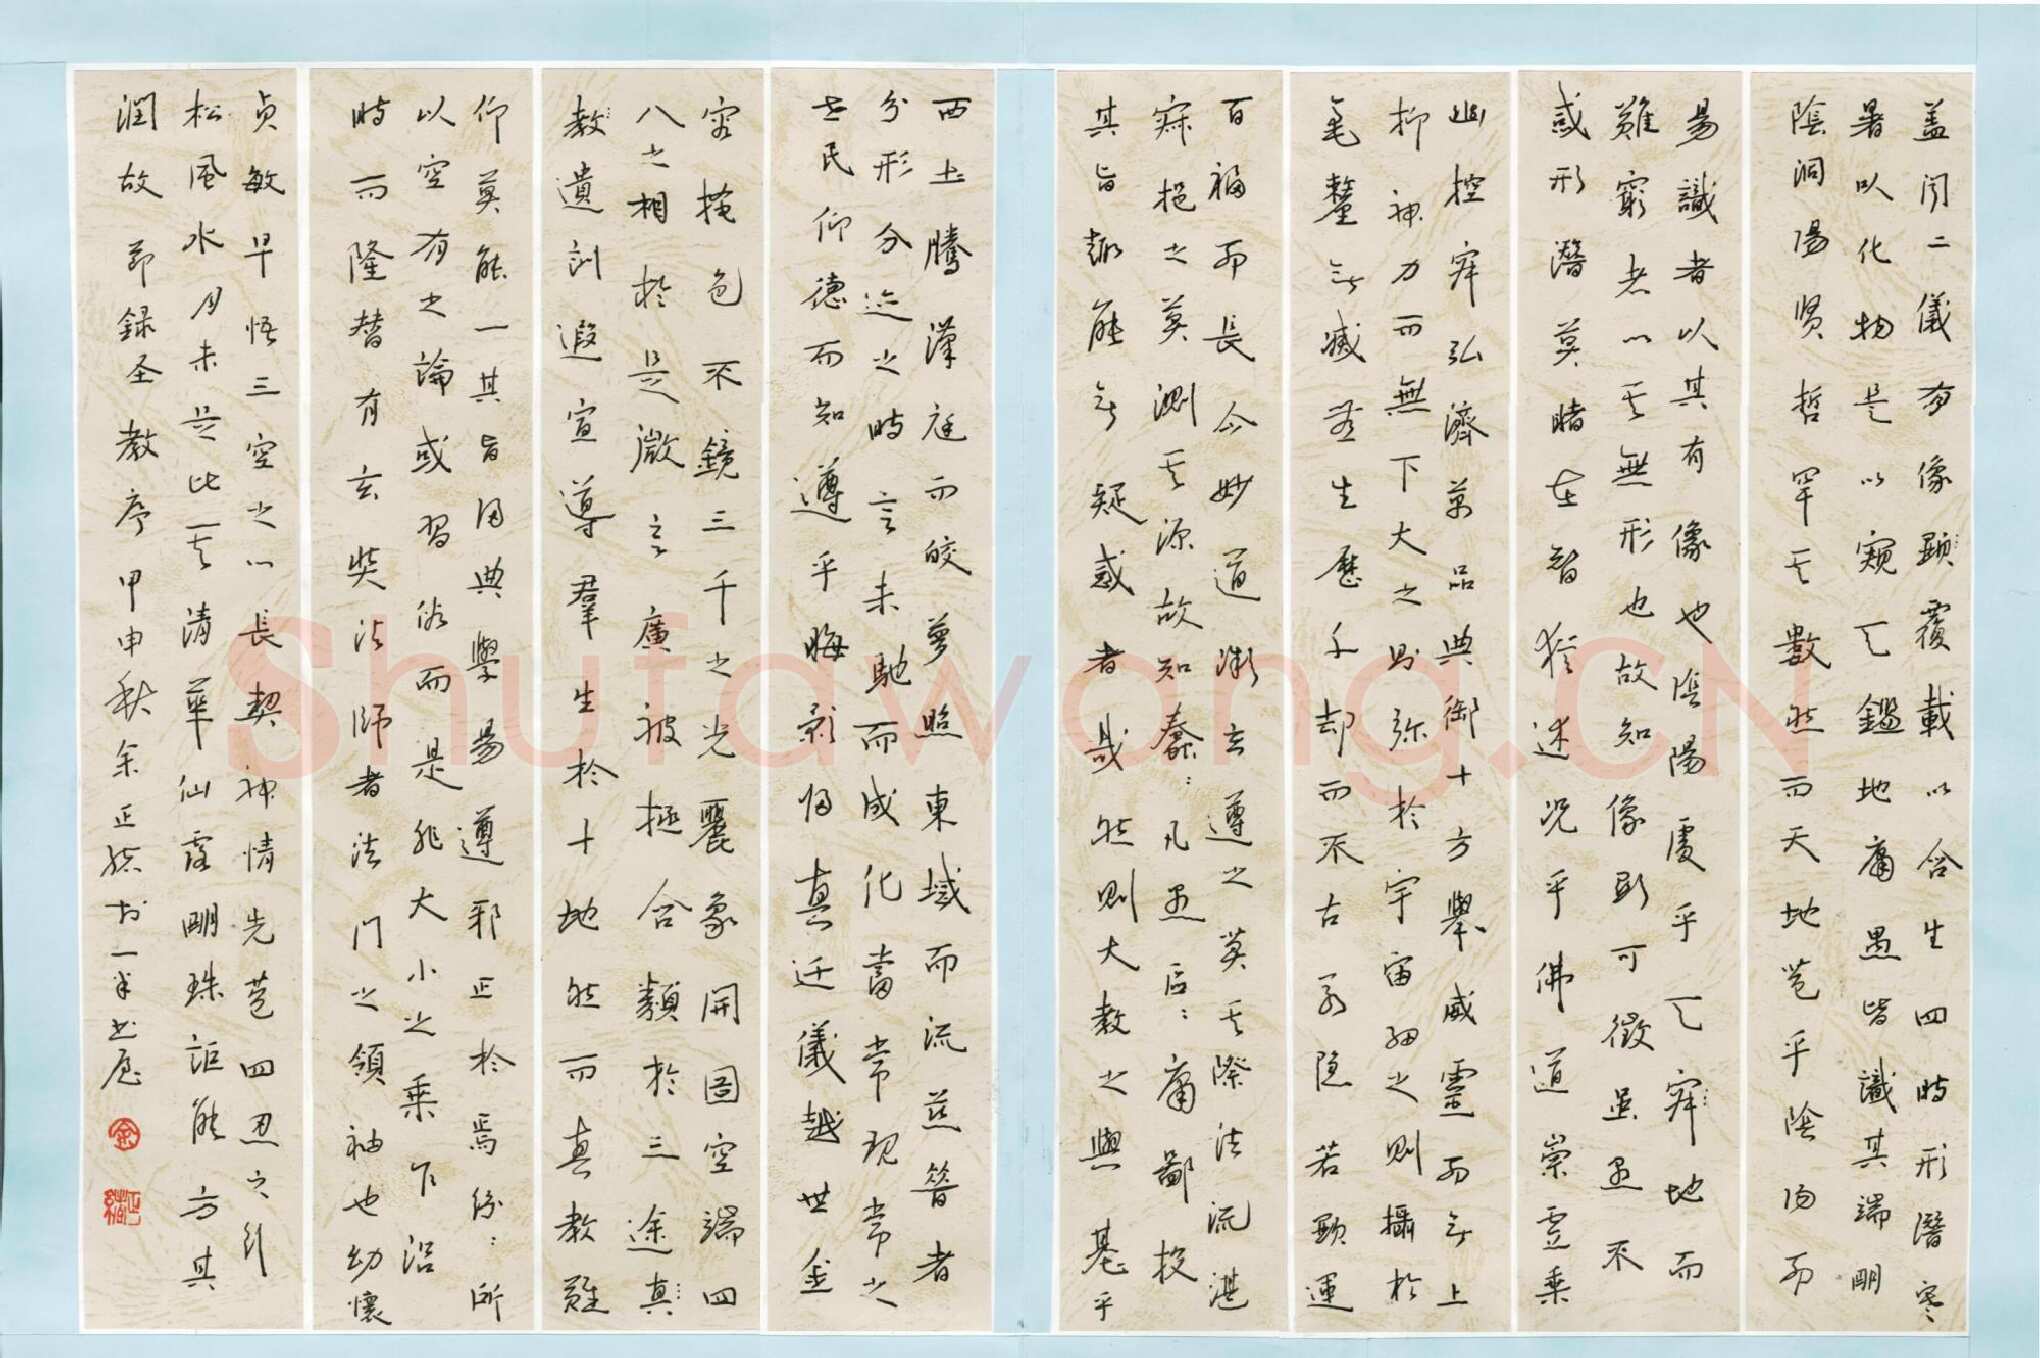 盖闻二儀有像顕覆載以含生四時形潛寒
暑以化物是以窺天鑑地庸愚皆識其端明
陰洞陽贤哲罕其數然而天地苞乎陰陽而
易識者以其有像也陰陽處乎天地而
難窮者以其無形也故知像顕可徵虽愚不
惑形潛莫睹在智猶迷况乎佛道崇虚乘
幽控寂弘濟萬品典御十方舉威靈而无上
抑神力而無下大之則弥於宇宙細之則攝於
毫釐无滅无生歷千劫而不古若隐若顕運
百福而長今妙道凝玄遵之莫其際法流湛
寂挹之莫測其源故知蠢:凡愚區:庸鄙投
其旨趣能无疑惑者哉然則大教之興基乎
西土騰漢庭而皎夢照東域而流慈昔者
分形分迹之時言未馳而成化當常現常之
世民仰德而知遵乎晦影归真迁儀越世金
容掩色不鏡三千之光麗象開圖空端四
八之相於是微言廣被拯含類於三途真
教遺訓遐宣導羣生於十地然而真教難
仰莫能一其旨归典學易遵邪正於焉紛:所
以空有之論或習俗而是非大小之乘乍沿
時而隆替有玄奘法師者法門之領袖也幼懷
贞敏早悟三空之心長契神情先苞四忍之行
松風水月未足比其清華仙露明珠詎能方其
潤故节録圣教序甲申秋余正結书一半书屋
Shufawang.CN